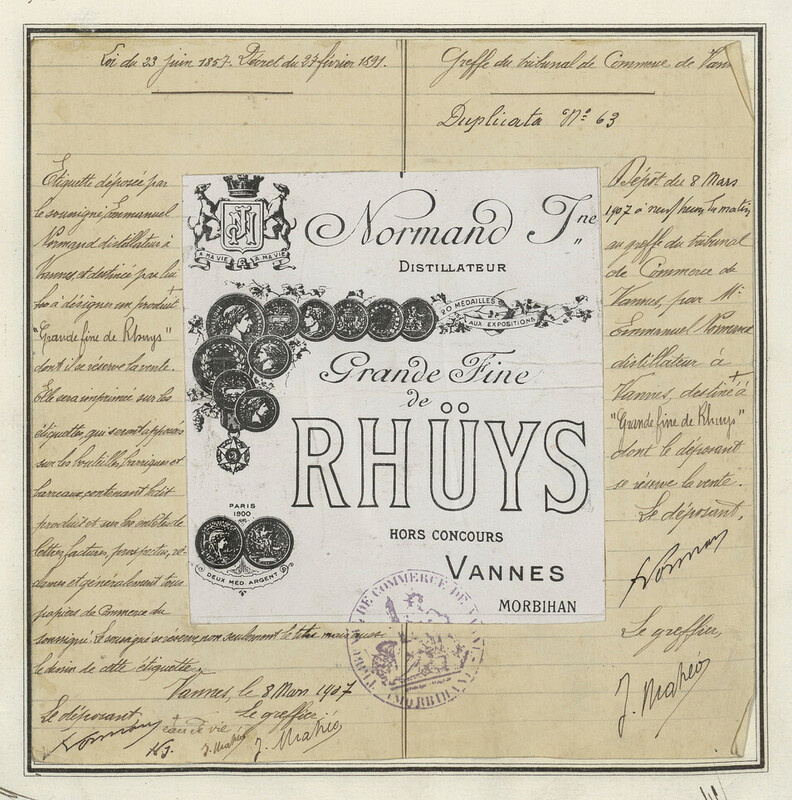 Loi du 23 juin 1857. Décret du 27 février 1891.
Greffe du tribunal de Commerce de Vann
Duplicata Nº 63
Etiquette déposée par
le soussigné Emmanuel
Normand distillateur à
Vannes, et destinée par lui
à désigner un produit +
"Grande fine de Rhuys"
dont il se réserve la vente.
Elle sera imprimée sur les
étiquettes, qui seront apposées
sur les bouteilles, barriques et
barreaux, contenant ledit
produit et sur les entêtes de
lettres, factures, prospectus, ré-
clames et généralement tous
papiers de Commerce du
soussigné. Le soussigné se réserve, non seulement le titre mais aussi
le dessin de cette étiquette.
Vannes, le 8 Mars 1907
Le déposant
Le greffier
Normand
+ eau de vie
J. Mahéo
J. Mahéo
A MA VIE
A MA VIE
Normand Jne
DISTILLATEUR
20 MÉDAILLES
AUX EXPOSITIONS
Grande Fine
de
RHÜYS
PARIS
1900
DEUX MED. ARGENT
HORS CONCOURS
VANNES
MORBIHAN
TRIBUNAL DE COMMERCE DE VANNES
(MORBIHAN)
Dépôt du 8 Mars
1907 à neuf heures du matin
au greffe du tribunal
de Commerce de
Vannes, par Mr
Emmanuel Normand
distillateur à
Vannes, destiné à +
"Grande fine de Rhuys"
dont le déposant
se réserve la vente.
Le déposant,
Normand
Le greffier,
J. Mahéo